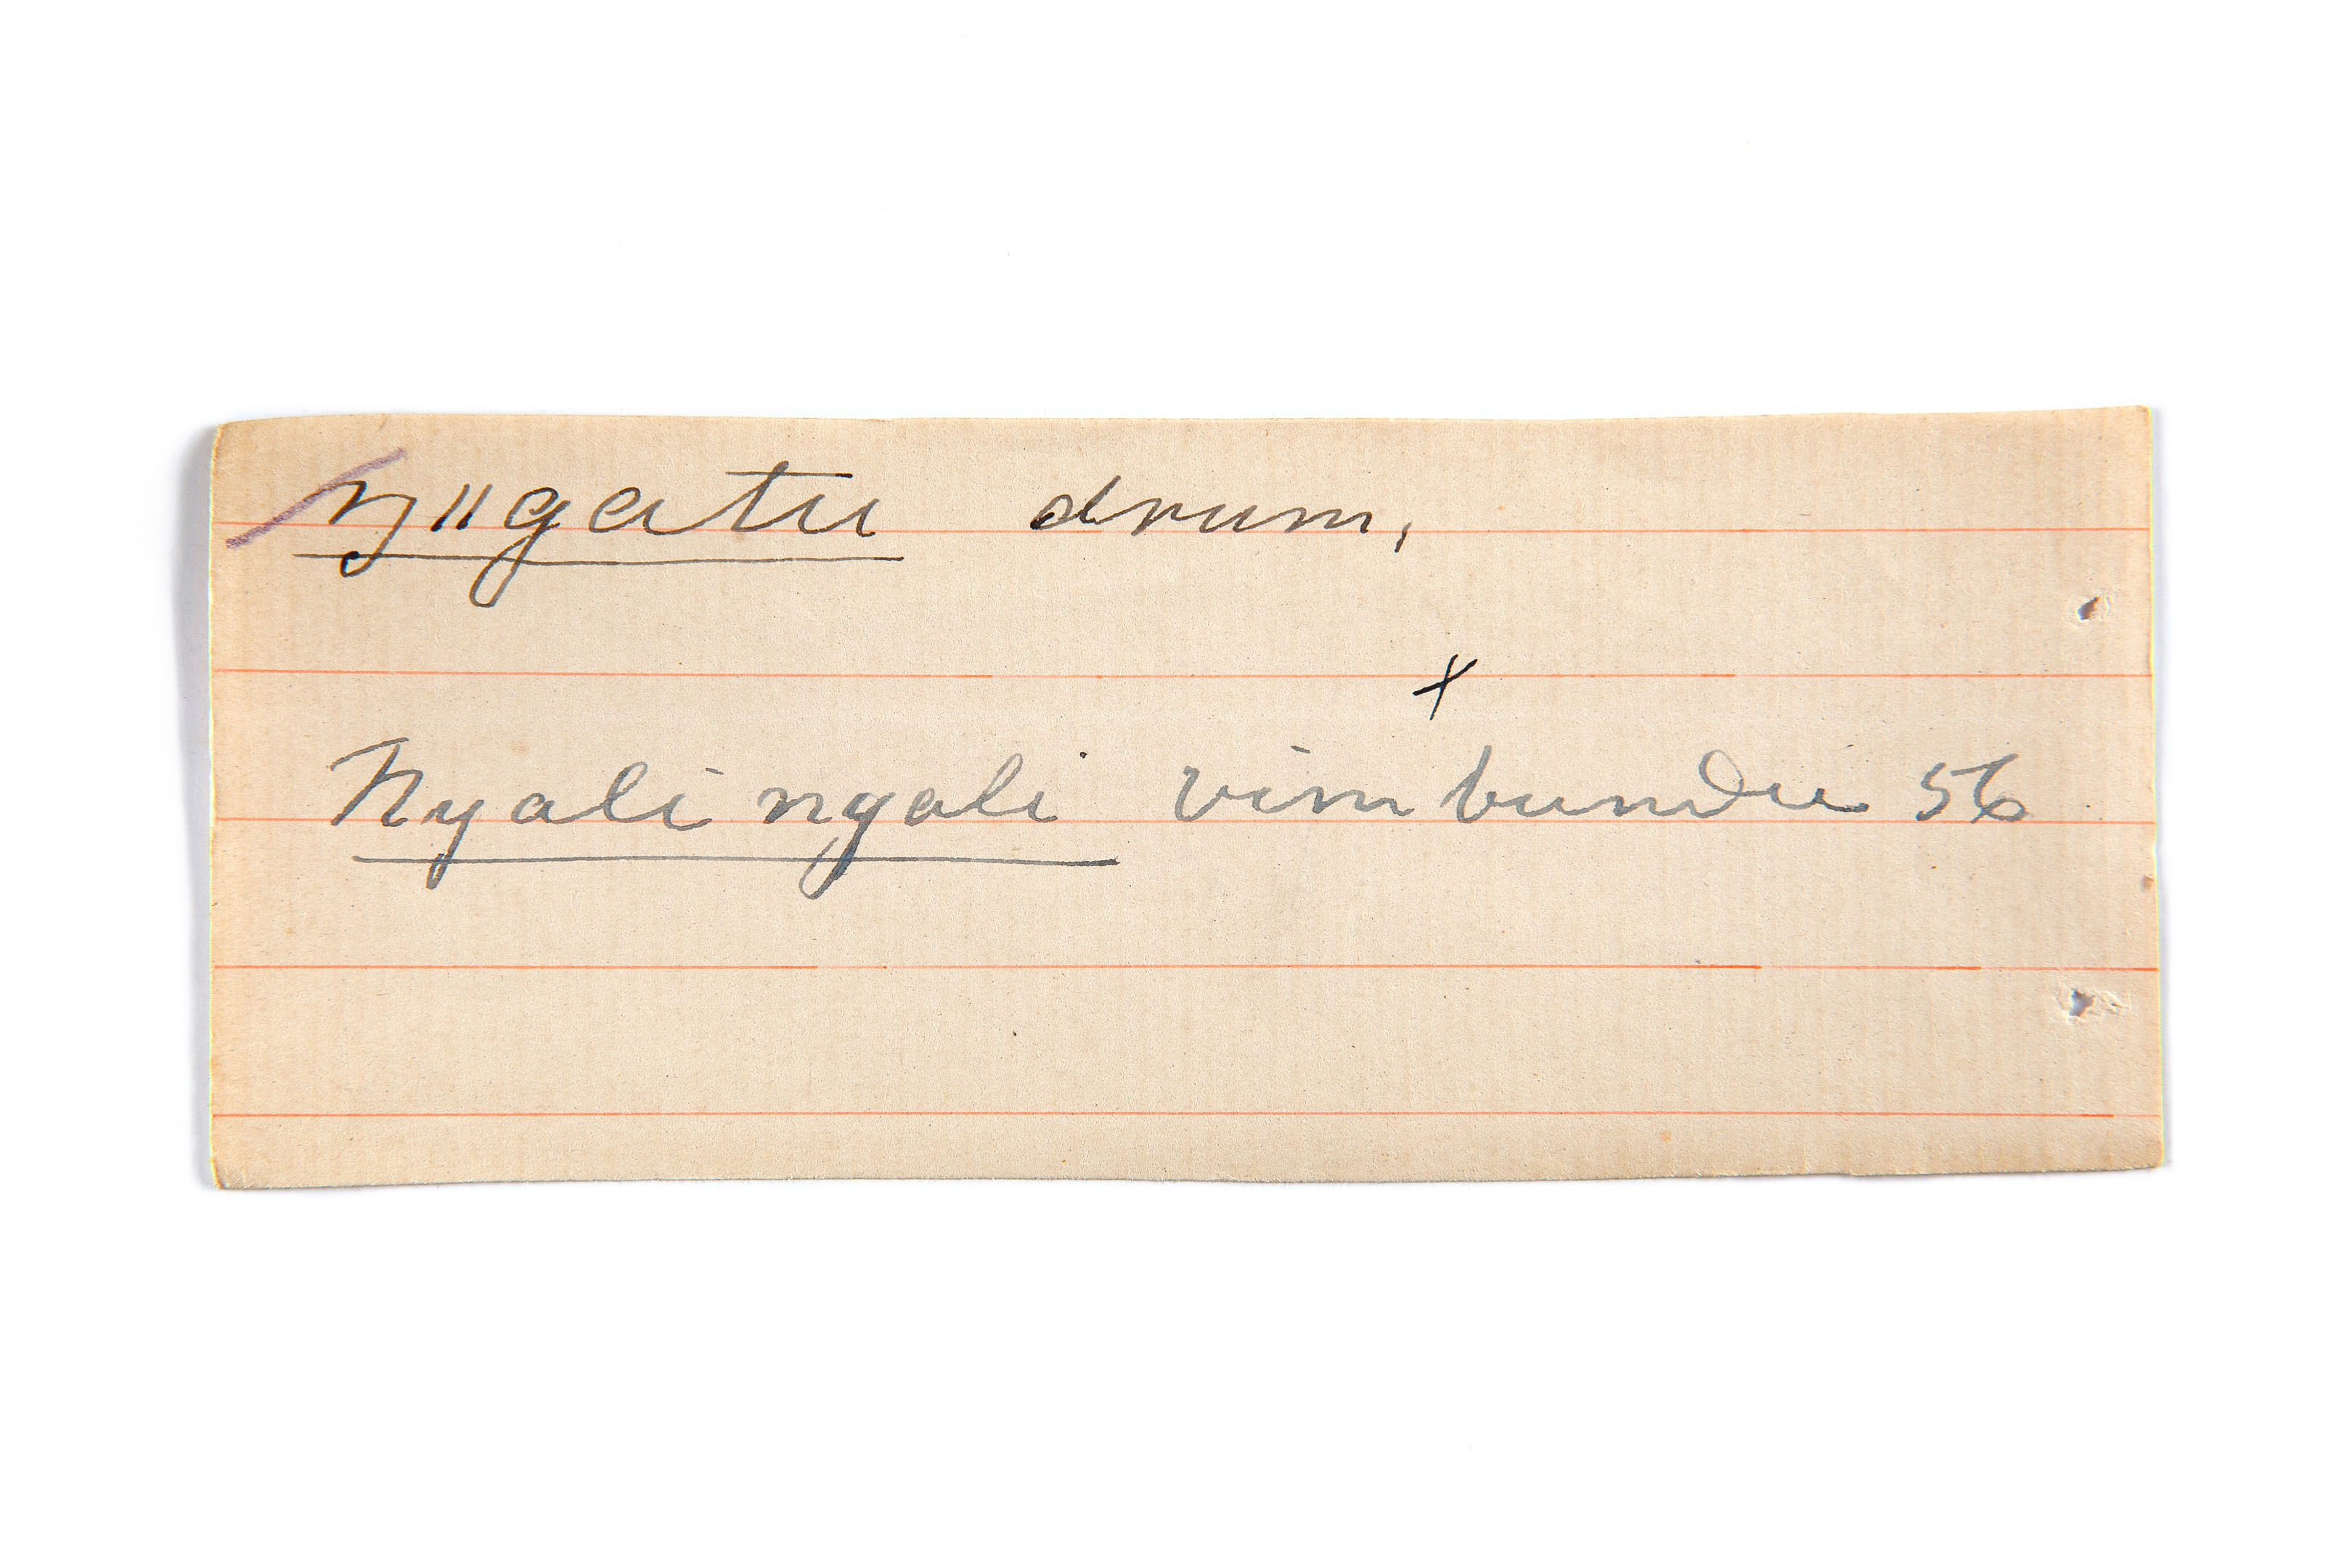 ŋ||gatu drum,
x
Nyalingali vimbundu 56